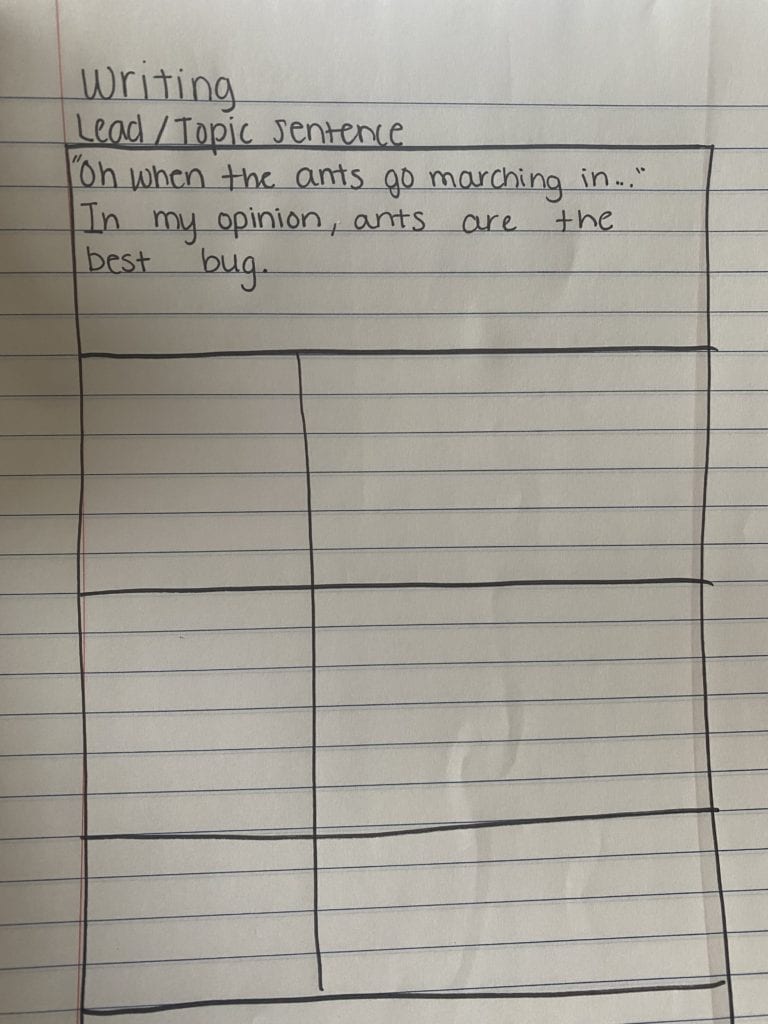 Writing
Lead/Topic sentence
"Oh when the ants go marching in..."
In my opinion, ants are the
best bug.